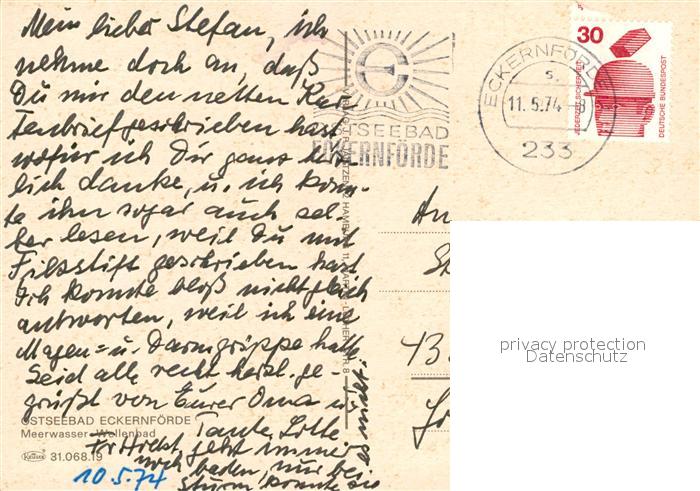 Mein lieber Stefan, ich
nehme doch an, daß
Du mir den netten Kar-
tenbrief geschrieben hast
wofür ich Dir ganz herz-
lich danke, u. ich konn-
te ihn sogar auch sel-
ber lesen, weil Du mit
Filzstift geschrieben hast
Ich konnte bloß nicht gleich
antworten, weil ich eine
Magen- u. Darmgrippe hatte.
Seid alle recht herzl. ge-
grüßt von Eurer Oma u.
Tante Lotte
geht immer
noch baden, nur bei
Sturm konnte sie
OSTSEEBAD ECKERNFÖRDE
Meerwasser-Wellenbad
Krüger 31.068.19
10.5.74
OSTSEEBAD
ECKERNFÖRDE
ECKERNFÖRDE
11.5.74-8
233
30
JEDERZEIT SICHERHEIT
DEUTSCHE BUNDESPOST
An
43
privacy protection
Datenschutz